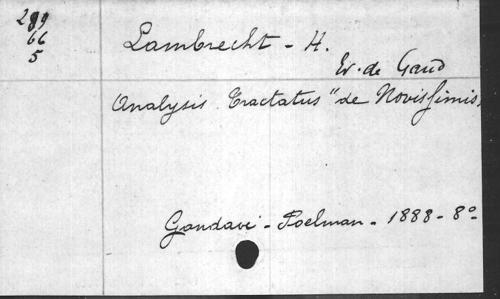 289
66
5
Lambrecht - H.
Ev. de Gand
Analysis Tractatus "de Novissimis,
Gandavi - Poelman - 1888 - 8º